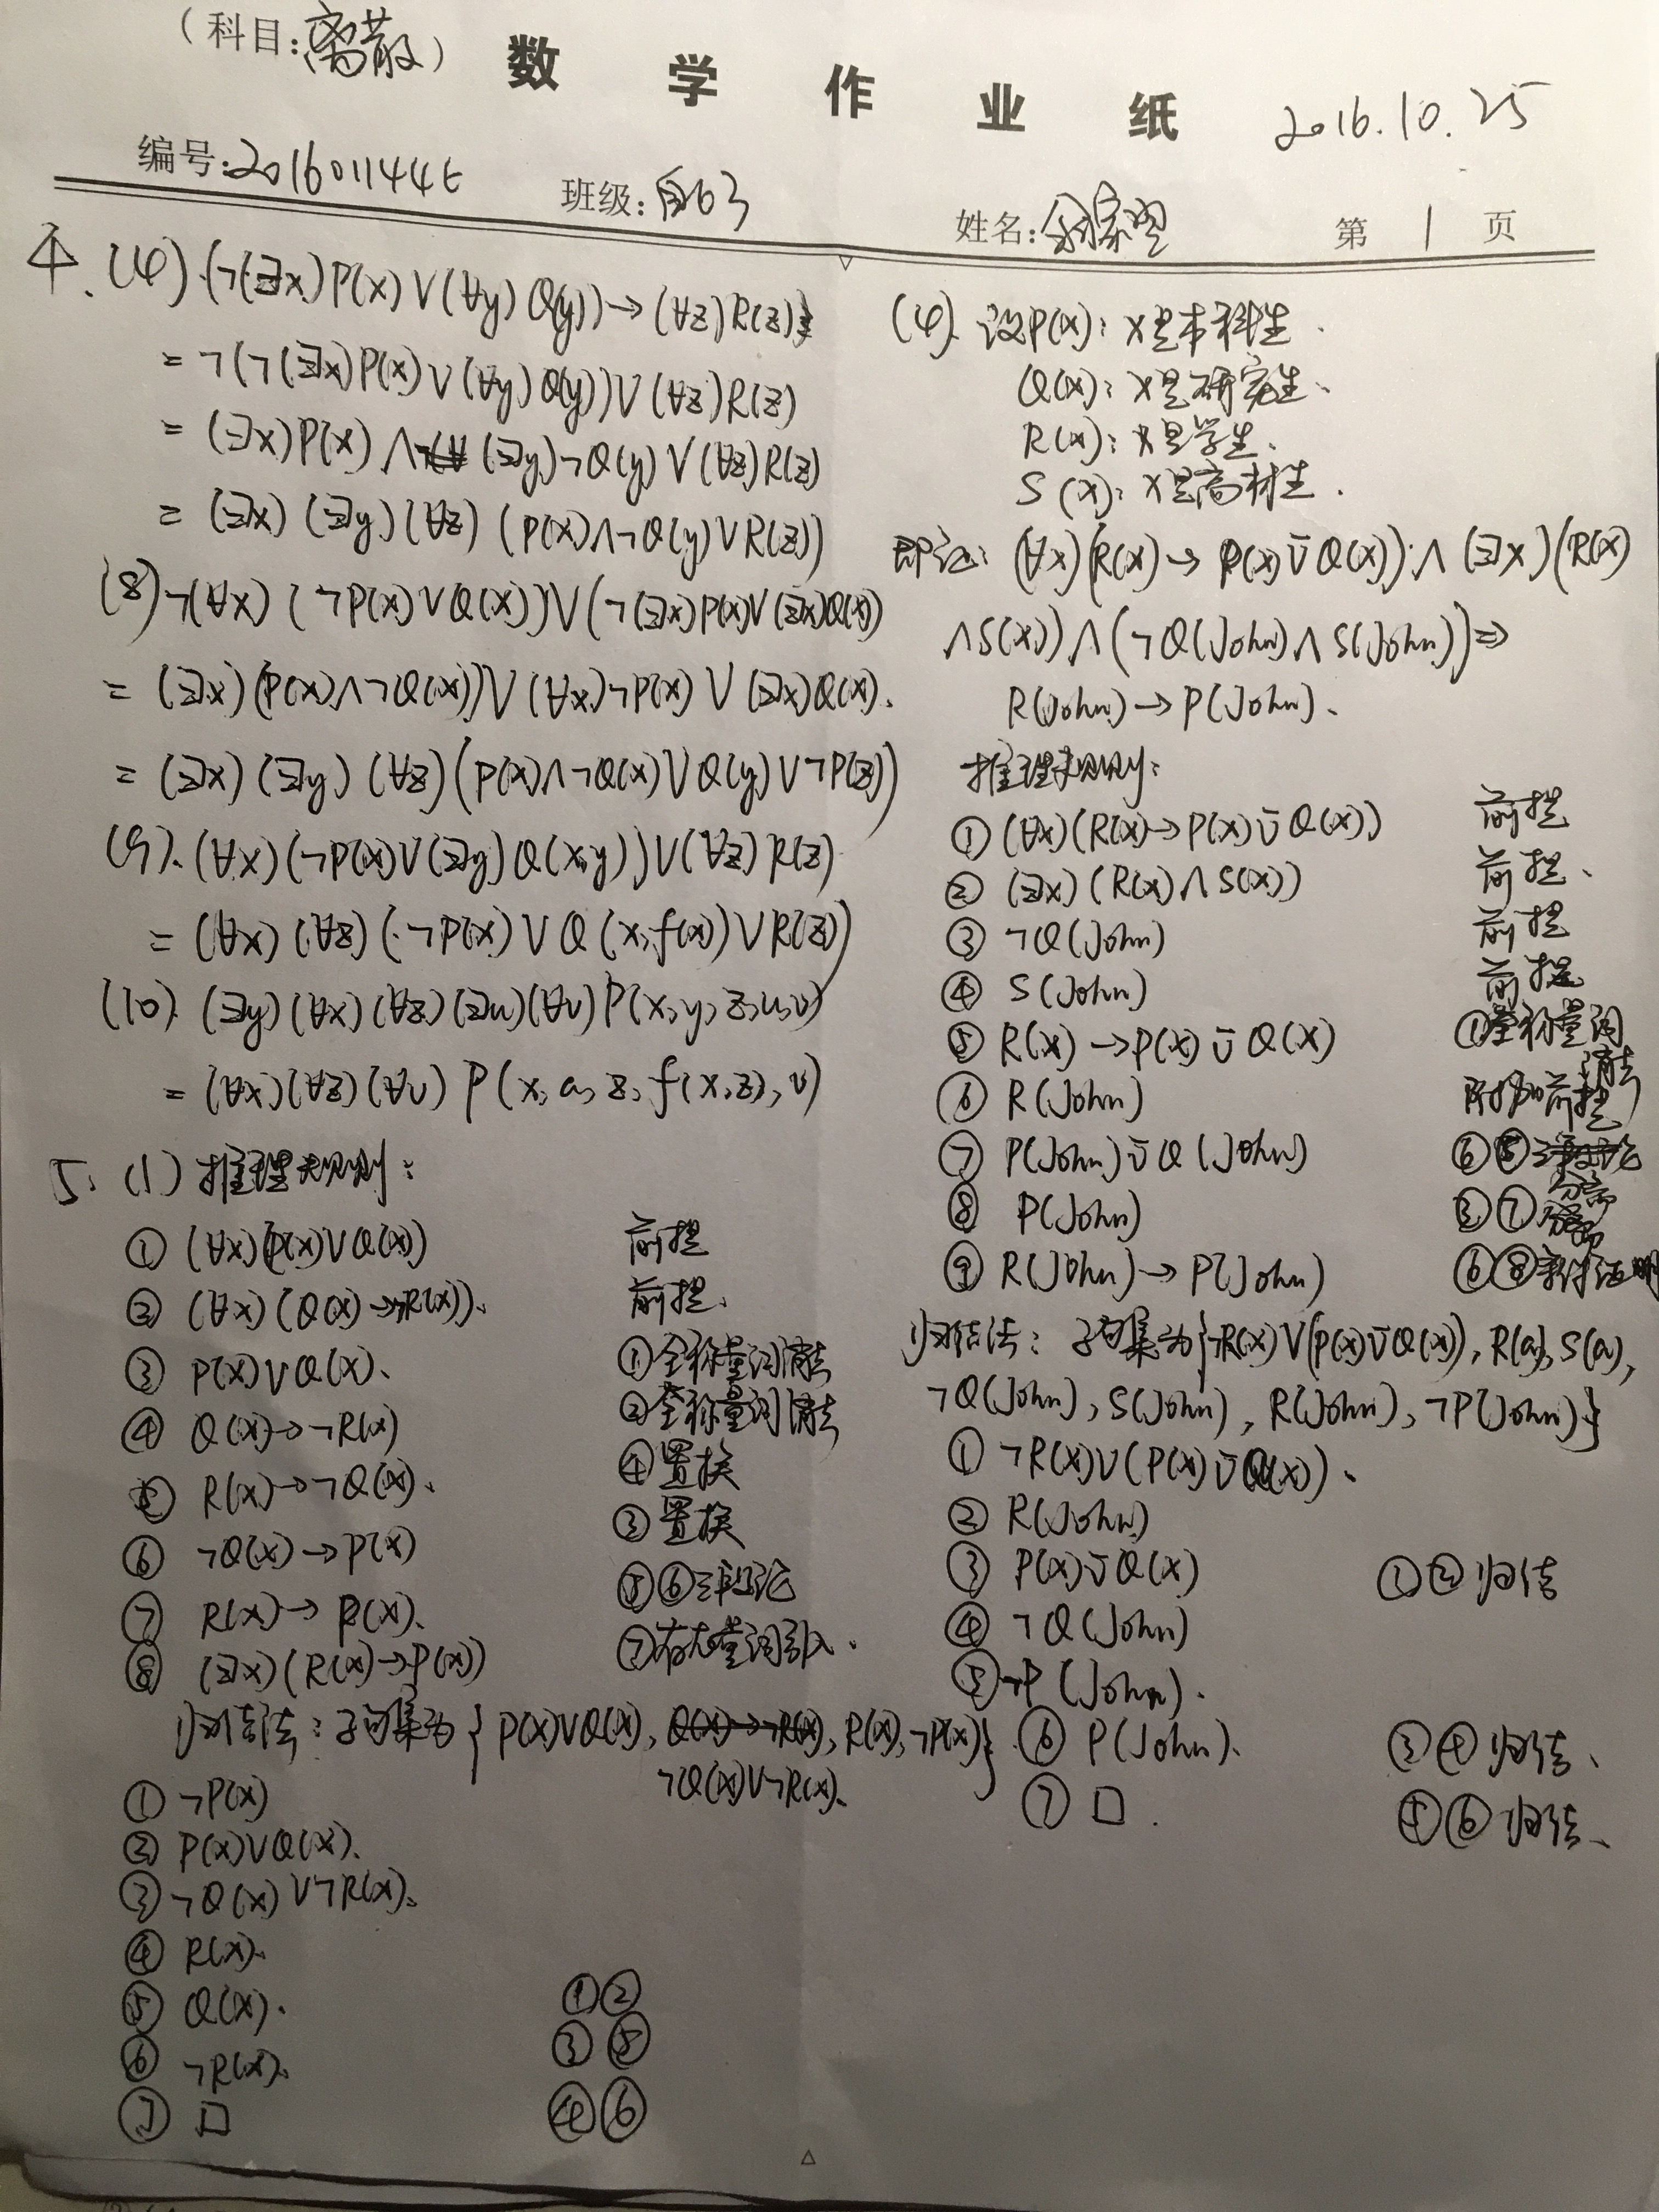 （科目：离散）数学作业纸 2016.10.25
编号：201601144 班级：自63 姓名： 第 1 页
4. (4) (¬(∃x)P(x)∨(∀y)Q(y))→(∀z)R(z)
= ¬(¬(∃x)P(x)∨(∀y)Q(y))∨(∀z)R(z)
= (∃x)P(x)∧(∃y)¬Q(y)∨(∀z)R(z)
= (∃x)(∃y)(∀z)(P(x)∧¬Q(y)∨R(z))
(8) ¬(∀x)(¬P(x)∨Q(x))∨(¬(∃x)P(x)∨(∃x)Q(x))
= (∃x)(P(x)∧¬Q(x))∨(∀x)¬P(x)∨(∃x)Q(x).
= (∃x)(∃y)(∀z)(P(x)∧¬Q(x)∨Q(y)∨¬P(z))
(9). (∀x)(¬P(x)∨(∃y)Q(x,y))∨(∀z)R(z)
= (∀x)(∀z)(¬P(x)∨Q(x,f(x))∨R(z))
(10). (∃y)(∀x)(∀z)(∃u)(∀v)P(x,y,z,u,v)
= (∀x)(∀z)(∀v)P(x,a,z,f(x,z),v)
5. (1) 推理规则：
① (∀x)(P(x)∨Q(x)) 前提
② (∀x)(Q(x)→¬R(x)). 前提.
③ P(x)∨Q(x). ①全称量词消去
④ Q(x)→¬R(x) ②全称量词消去
⑤ R(x)→¬Q(x). ④置换
⑥ ¬Q(x)→P(x) ③置换
⑦ R(x)→P(x). ⑤⑥三段论
⑧ (∃x)(R(x)→P(x)) ⑦存在量词引入.
归结法：子句集为{P(x)∨Q(x), R(x),¬P(x)}
¬Q(x)∨¬R(x).
① ¬P(x)
② P(x)∨Q(x).
③ ¬Q(x)∨¬R(x).
④ R(x).
⑤ Q(x). ①②
⑥ ¬R(x). ③⑤
⑦ □ ④⑥
(4). 设P(x)：x是本科生.
Q(x)：x是研究生.
R(x)：x是学生.
S(x)：x是高材生.
即证：(∀x)(R(x)→P(x)⊽Q(x))∧(∃x)(R(x)
∧S(x))∧(¬Q(John)∧S(John))⇒
R(John)→P(John).
推理规则：
① (∀x)(R(x)→P(x)⊽Q(x)) 前提
② (∃x)(R(x)∧S(x)) 前提.
③ ¬Q(John) 前提
④ S(John) 前提
⑤ R(x)→P(x)⊽Q(x) ①全称量词消去
⑥ R(John) 附加前提
⑦ P(John)⊽Q(John) ⑥⑤分离
⑧ P(John) ③⑦
⑨ R(John)→P(John) ⑥⑧条件证明
归结法：子句集为{¬R(x)∨(P(x)⊽Q(x)), R(a), S(a),
¬Q(John), S(John), R(John), ¬P(John)}
① ¬R(x)∨(P(x)⊽Q(x)).
② R(John)
③ P(x)⊽Q(x) ①②归结
④ ¬Q(John)
⑤ ¬P(John).
⑥ P(John). ③④归结.
⑦ □. ⑤⑥归结.